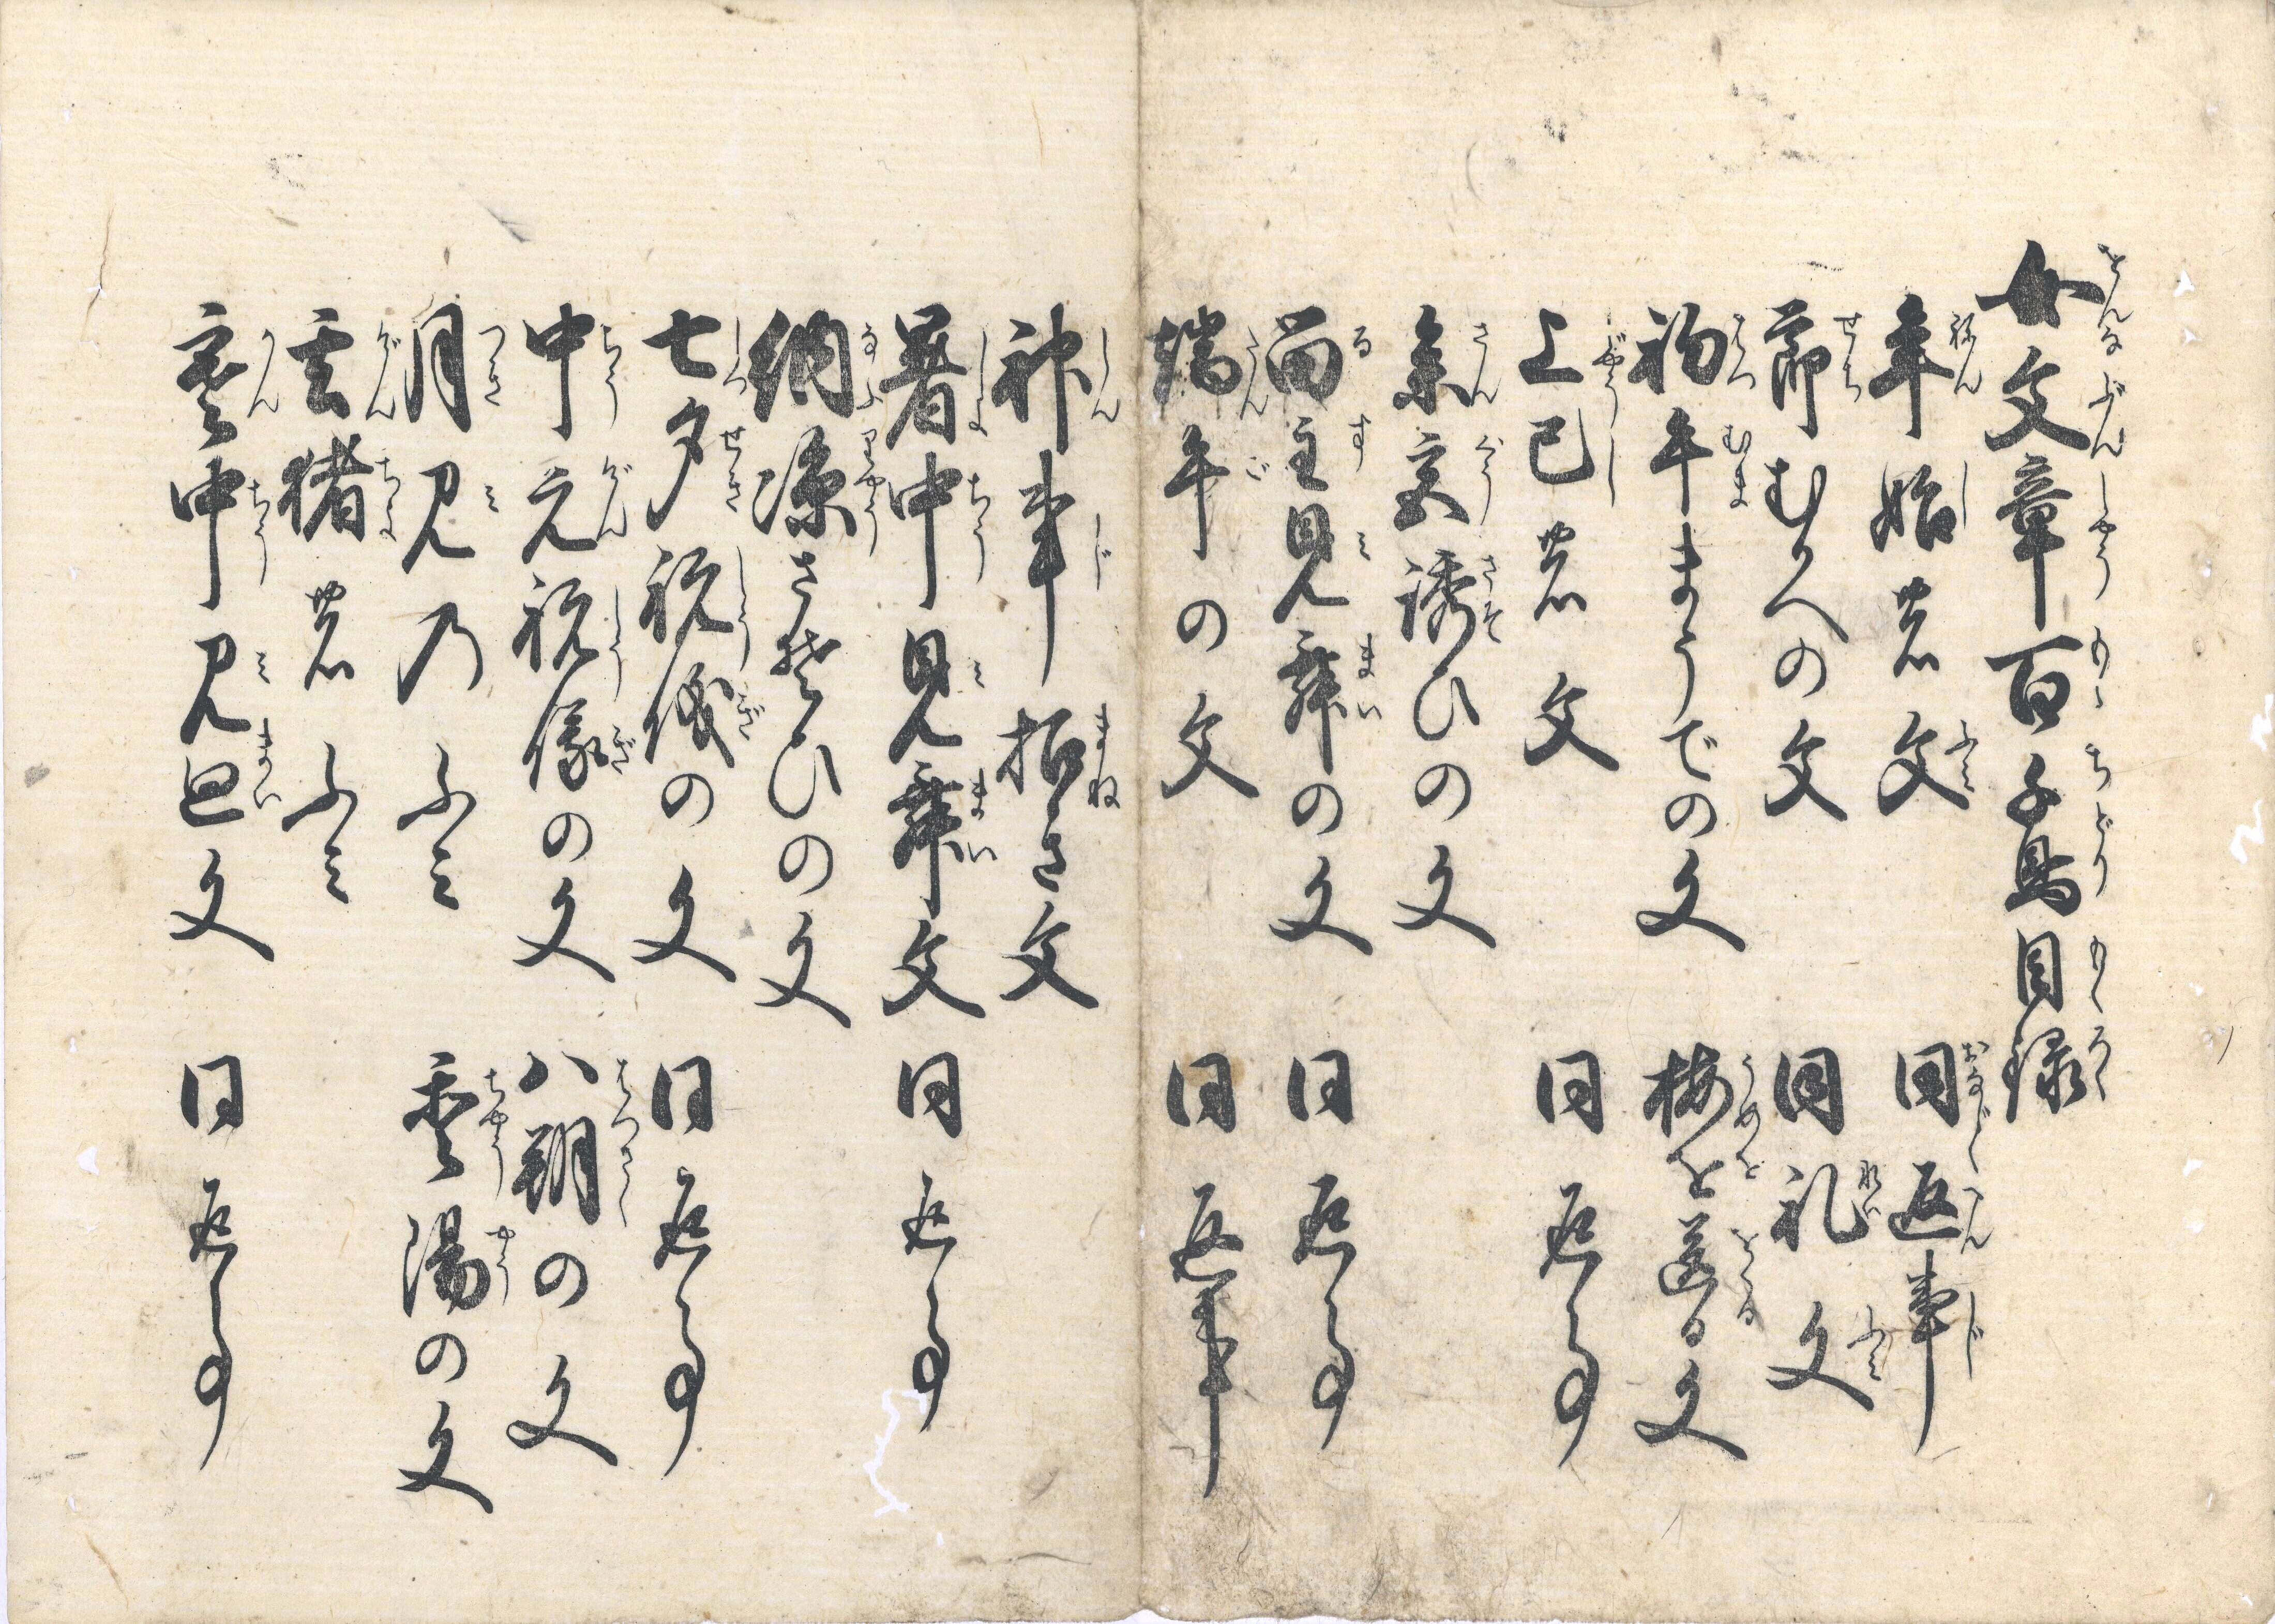 女文章百千鳥目録
年始の文 同返事
節むかへの文 同礼文
初午まうでの文 梅を送る文
上巳の文 同返事
参宮誘ひの文
留主見舞の文 同返事
端午の文 同返事
神事招き文
暑中見舞文 同返事
納涼さそひの文
七夕祝儀の文 同返事
中元祝儀の文 八朔の文
月見乃ふみ 重陽の文
玄猪のふみ
寒中見まい文 同返事